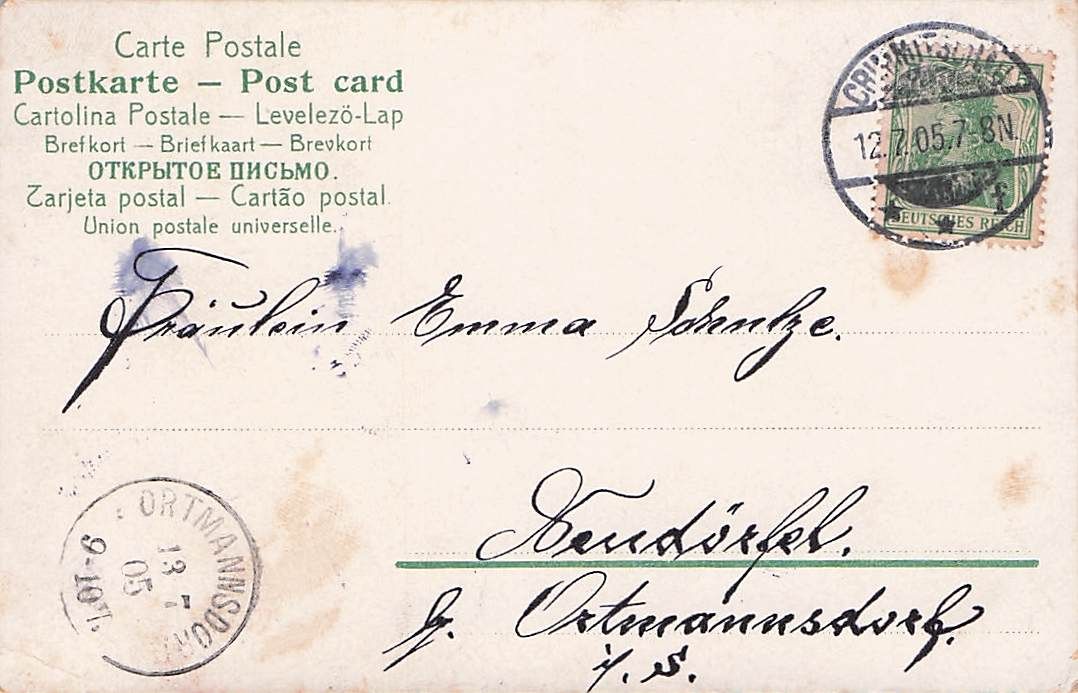 Carte Postale
Postkarte — Post card
Cartolina Postale — Levelezö-Lap
Brefkort — Briefkaart — Brevkort
ОТКРЫТОЕ ПИСЬМО.
Tarjeta postal — Cartão postal.
Union postale universelle.
CRIMMITSCHAU
12.7.05.7-8N.
* * f
5
DEUTSCHES REICH
Fräulein Emma Schulze.
Neudörfel.
b. Ortmannsdorf.
i/S.
ORTMANNSDORF
13 7
05
9-10V.